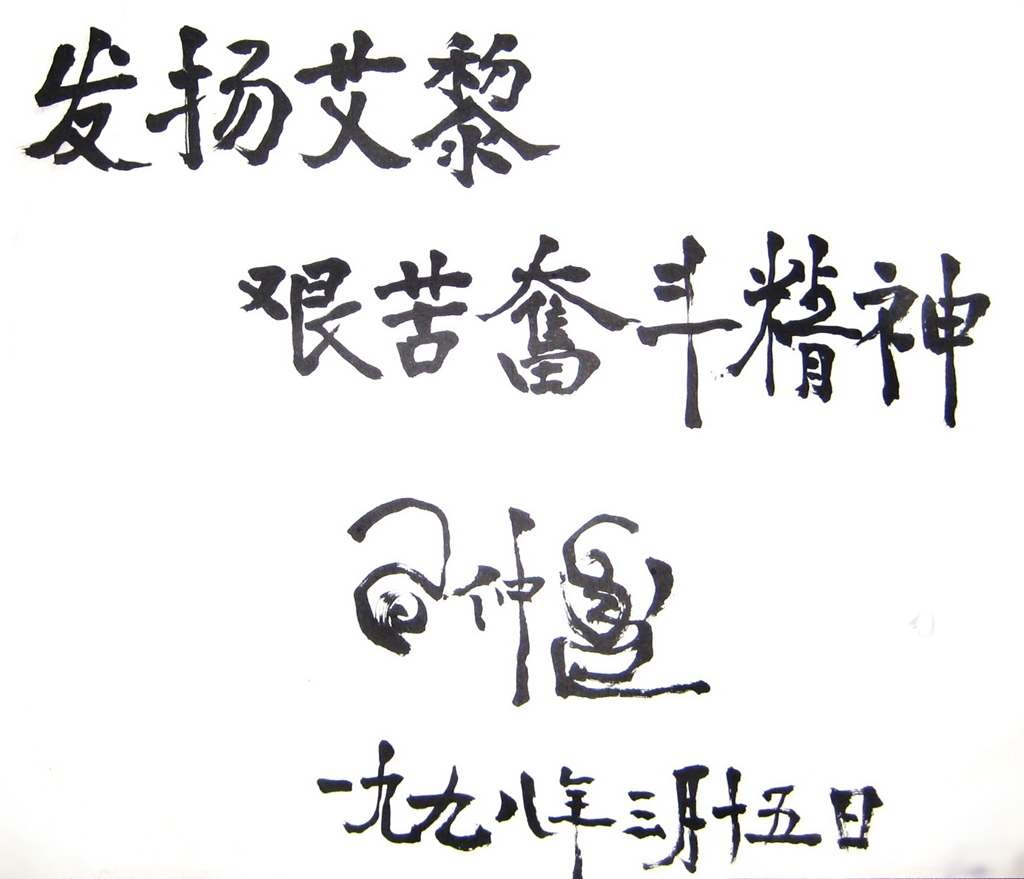 发扬艾黎
艰苦奋斗精神
一九九八年三月十五日